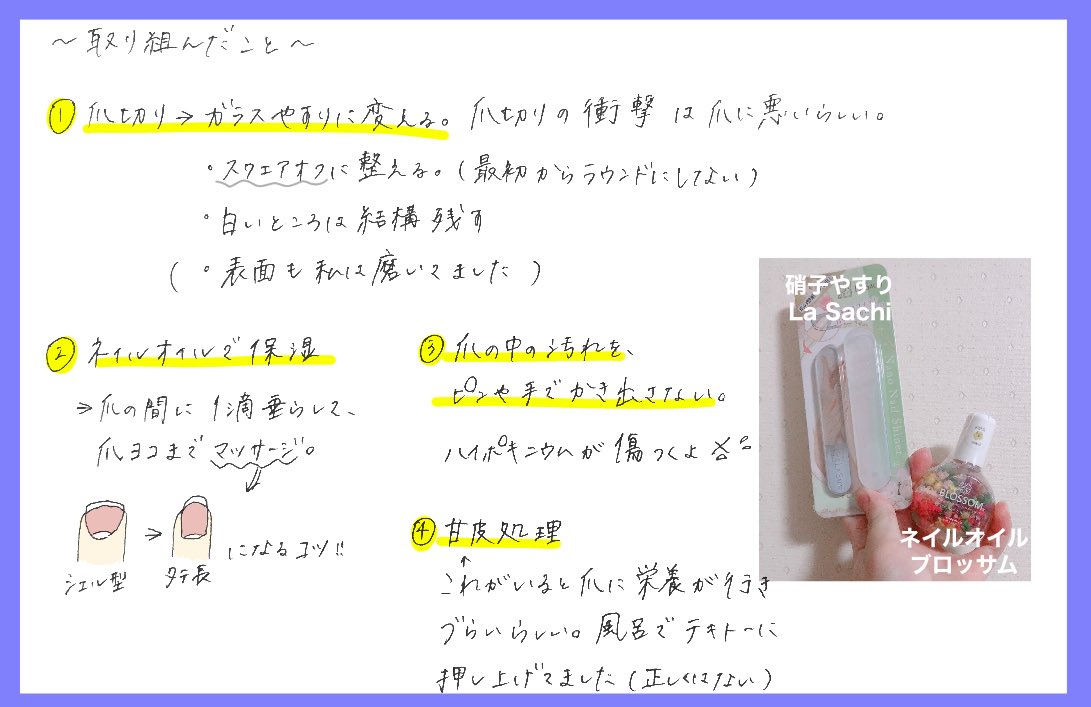 ～取り組んだこと～
① 爪切り→ガラスやすりに変える。爪切りの衝撃は爪に悪いらしい。
・スクエアオフに整える。(最初からラウンドにしてない)
・白いところは結構残す
(・表面も私は磨いてました)
② ネイルオイルで保湿
⇒爪の間に1滴垂らして、
爪ヨコまでマッサージ。
シェル型 → タテ長 になるコツ!!
③ 爪の中の汚れを、
ピンや手でかき出さない。
ハイポキニウムが傷つくよ
④ 甘皮処理
↑
これがいると爪に栄養が行き
づらいらしい。風呂でテキトーに
押し上げてました(正しくはない)
硝子やすり
La Sachi
Nano Nail Shiner
BLOSSOM
ネイルオイル
ブロッサム